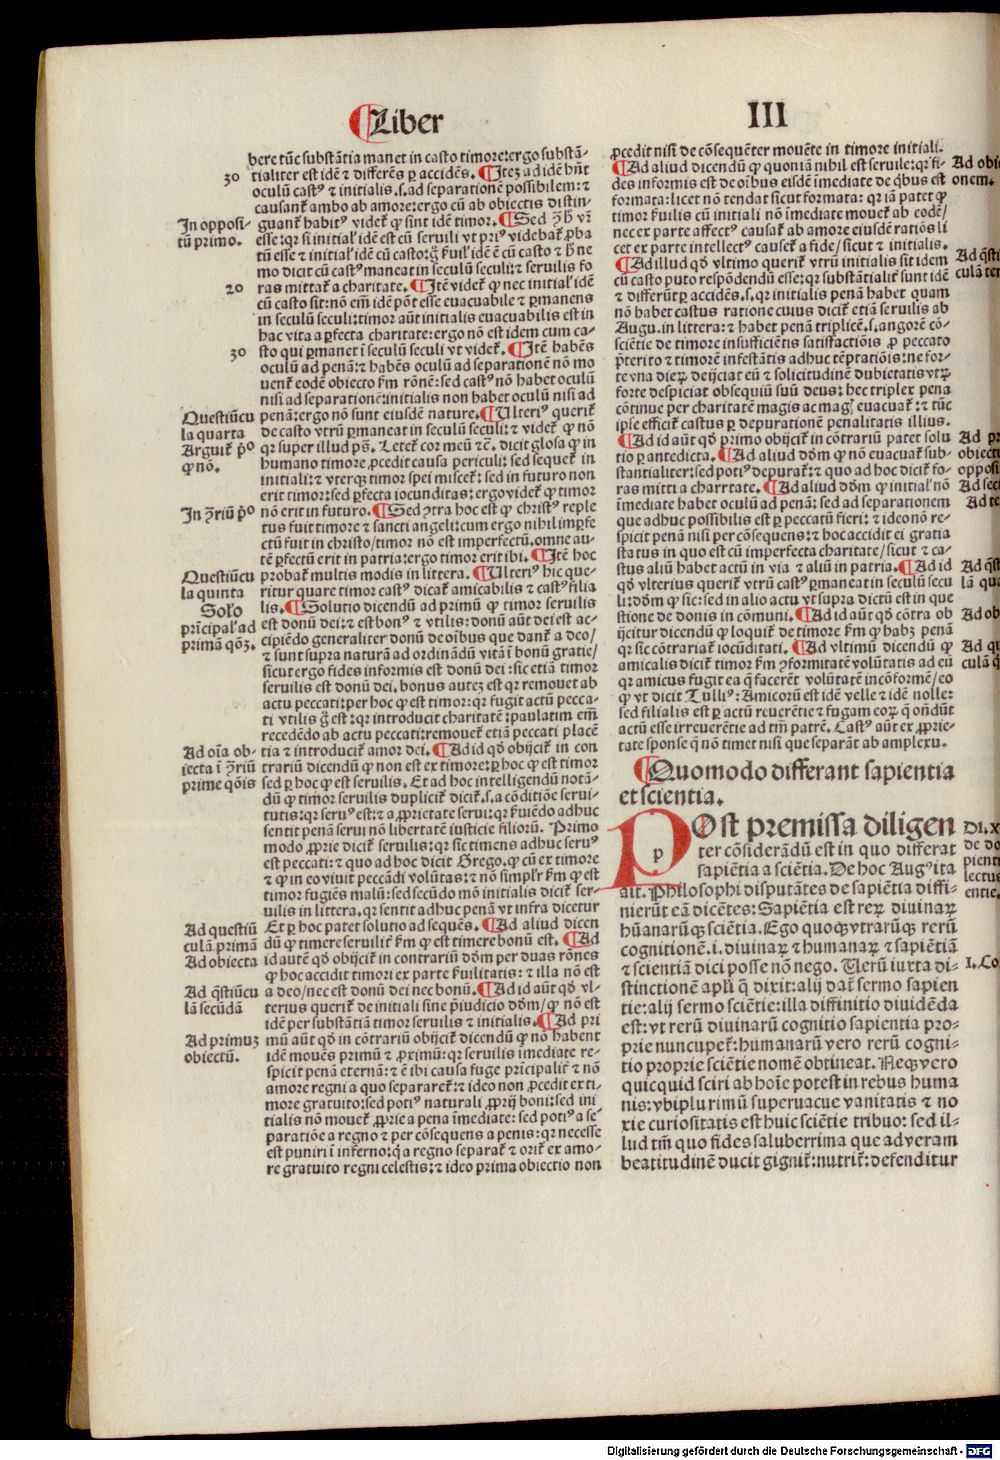 Liber
III
bere tūc substātia manet in casto timore: ergo substā-
tialiter est idē ⁊ differēs ꝑ accidēs. ¶ Itez ad idē hn̄t
oculū castꝰ ⁊ initialis .s. ad separationē possibilem: ⁊
causant̄ ambo ab amore: ergo cū ab obiectis distin-
guant̄ habitꝰ videt̄ ꝙ sint idē timor. ¶ Sed ꝯ͂ h̄ vr̄
esse: qr si initial' idē est cū seruili vt priꝰ videbat̄ ꝓba
tū esse ⁊ initial' idē cū casto: g̊ ẜuil' idē ē cū casto ⁊ h̄ ne
mo dicit cū castꝰ maneat in seculū seculi: ⁊ seruilis fo
ras mittat̄ a charitate. ¶ Itē videt̄ ꝙ nec initial' idē
cū casto sit: nō em̄ idē pōt esse euacuabile ⁊ ꝑmanens
in seculū seculi: timor aūt initialis euacuabilis est in
hac vita a ꝑfecta charitate: ergo nō est idem cum ca-
sto qui ꝑmanet ī seculū seculi vt videt̄. ¶ Itē habēs
oculū ad penā: ⁊ habēs oculū ad separationē nō mo
uent̄ eodē obiecto ẜm rōnē: sed castꝰ nō habet oculū
nisi ad separationē: initialis non habet oculū nisi ad
penā: ergo nō sunt eiusdē nature. ¶ Ulteriꝰ querit̄
de casto vtrū ꝑmaneat in seculū seculi: ⁊ videt̄ ꝙ nō
qr super illud pš. Letet̄ cor meū ⁊c̄. dicit glosa ꝙ in
humano timore ꝓcedit causa periculi: sed sequet̄ in
initiali: ⁊ vterqꝫ timor spei miscet̄: sed in futuro non
erit timor: sed ꝑfecta iocunditas: ergo videt̄ ꝙ timor
nō erit in futuro. ¶ Sed ꝯtra hoc est ꝙ christꝰ reple
tus fuit timore ⁊ sancti angeli: cum ergo nihil imꝑfe
ctū fuit in christo/ timor nō est imperfectū. omne au-
tē ꝑfectū erit in patria: ergo timor erit ibi. ¶ Itē hoc
probat̄ multis modis in littera. ¶ Ulteriꝰ hic que-
ritur quare timor castꝰ dicat̄ amicabilis ⁊ castꝰ filia
lis. ¶ Solutio dicendū ad primū ꝙ timor seruilis
est donū dei: ⁊ est bonꝰ ⁊ vtilis: donū aūt dei est ac-
cipiēdo generaliter donū de oībus que dant̄ a deo/
⁊ sunt supra naturā ad ordinādū vitā ī bonū gratie/
sicut ergo fides informis est donū dei: sic etiā timor
seruilis est donū dei. bonus autez est qr remouet ab
actu peccati: per hoc ꝙ est timor: qr fugit actū pecca-
ti vtilis g̊ est: qr introducit charitatē: paulatim em̄
recedēdo ab actu peccati: remouet̄ etiā peccati placē
tia ⁊ introducit̄ amor dei. ¶ Ad id qō obijcit̄ in con
trariū dicendū ꝙ non est ex timore: ꝑ hoc ꝙ est timor
sed ꝑ hoc ꝙ est seruilis. Et ad hoc intelligendū notā-
dū ꝙ timor seruilis duplicit̄ dicit̄ .s. a cōditiōe serui-
tutis: qr seruꝰ est: ⁊ a ꝓprietate serui: qr ẜuiēdo adhuc
sentit penā serui nō libertatē iusticie filiorū. Primo
modo ꝓprie dicit̄ seruilis: qr sic timens adhuc seruꝰ
est peccati: ⁊ quo ad hoc dicit Grego. ꝙ cū ex timore
⁊ ꝙ in eo viuit peccādi volūtas: ⁊ nō simpl'r ẜm ꝙ est
timor fugiēs malū: sed secūdo mō initialis dicit̄ ser-
uilis in littera. qr sentit adhuc penā vt infra dicetur
Et ꝑ hoc patet solutio ad sequēs. ¶ Ad aliud dicen
dū ꝙ timere seruilit̄ ẜm ꝙ est timere bonū est. ¶ Ad
id autē qō obijcit̄ in contrariū dōm per duas rōnes
ꝙ hoc accidit timori ex parte ẜuilitatis: ⁊ illa nō est
a deo/ nec est donū dei nec bonū. ¶ Ad id aūt qō vl-
terius querit̄ de initiali sine p̄iudicio dōm/ ꝙ nō est
idē per substātiā timor seruilis ⁊ initialis. ¶ Ad pri
mū aūt qō in cōtrariū obijcit̄ dicendū ꝙ nō habent
idē mouēs primū ⁊ ꝓximū: qr seruilis īmediate re-
spicit penā eternā: ⁊ ē ibi causa fuge pr̄ncipalit̄ ⁊ nō
amore regni a quo separaret̄: ⁊ ideo non ꝓcedit ex ti-
more gratuito: sed potiꝰ naturali ꝓprij boni: sed ini
tialis nō mouet̄ ꝓprie a pena īmediate: sed potiꝰ a se
paratiōe a regno ⁊ per cōsequens a penis: qr necesse
est puniri ī inferno: q̄ a regno separat̄ ⁊ orit̄ ex amo-
re gratuito regni celestis: ⁊ ideo prima obiectio non
30
In opposi-
tū primo.
20
30
Questiūcu
la quarta
Arguit̄ p̄o
ꝙ nō.
In ꝯ͂riū p̄o
Questiūcu
la quinta
Sol'o
pr̄icipal' ad
primā qōꝫ.
Ad oīa ob-
iecta ī ꝯ͂riū
prime qōis
Ad questiū
culā primā
Ad obiecta
Ad q̄stiūcu
lā secūdā
Ad primuꝫ
obiectū.
ꝓcedit nisi de cōsequēter mouēte in timore initiali.
¶ Ad aliud dicendū ꝙ quoniā nihil est seruile: qr fi-
des informis est de oībus eisdē īmediate de qbus est
formata: licet nō tendat sicut formata: qr iā patet ꝙ
timor ẜuilis cū initiali nō īmediate mouet̄ ab eodē/
nec ex parte affectꝰ causat̄ ab amore eiusdē ratiōs li
cet ex parte intellectꝰ causet̄ a fide/ sicut ⁊ initialis.
¶ Ad illud qō vltimo querit̄ vtrū initialis sit idem
cū casto puto respōdendū esse: qr substātialit̄ sunt idē
⁊ differūt ꝑ accidēs .s. qr initialis penā habet quam
nō habet castus ratione cuius dicit̄ etiā seruilis ab
Augu. in littera: ⁊ habet penā triplicē .s. angorē cō-
sciētie de timore insufficiētis satisfactiōis ꝓ peccato
p̄terito ⁊ timorē infestātis adhuc tēptatiōis: ne for-
te vna dieꝝ deijciat eū ⁊ solicitudinē dubietatis vt ꝓ
forte despiciat obsequiū suū deus: hec triplex pena
cōtinue per charitatē magis ac magꝭ euacuat̄: ⁊ tūc
ipse efficit̄ castus ꝑ depurationē penalitatis illius.
¶ Ad id aūt qō primo obijcit̄ in cōtrariū patet solu
tio ꝑ antedicta. ¶ Ad aliud dōm ꝙ nō euacuat̄ sub-
stantialiter: sed potiꝰ depurat̄: ⁊ quo ad hoc dicit̄ fo-
ras mitti a charrtate. ¶ Ad aliud dōm ꝙ initial' nō
īmediate habet oculū ad penā: sed ad separationem
que adhuc possibilis est ꝑ peccatū fieri: ⁊ ideo nō re-
spicit penā nisi per cōsequens: ⁊ hoc accidit ei gratia
status in quo est cū imperfecta charitate/ sicut ⁊ ca-
stus aliū habet actū in via ⁊ aliū in patria. ¶ Ad id
qō vlterius querit̄ vtrū castꝰ ꝑmaneat in seculū secu
li: dōm ꝙ sic: sed in alio actu vt supra dictū est in que
stione de donis in cōmuni. ¶ Ad id aūt qō cōtra ob
ijcitur dicendū ꝙ loquit̄ de timore ẜm ꝙ habꝫ penā
qr sic cōtrariat̄ iocūditati. ¶ Ad vltimū dicendū ꝙ
amicalis dicit̄ timor ẜm ꝯformitatē volūtatis ad eū
qr amicus fugit ea q̄ facerēt volūtatē incōformē/ eo
ꝙ vt dicit Tulliꝰ: Amicorū est idē velle ⁊ idē nolle:
sed filialis est ꝑ actū reuerētie ⁊ fugam eoꝝ q̄ oñdūt
actū esse irreuerētie ad tm̄ patrē. Castꝰ aūt ex ꝓprie-
tate sponse q̄ nō timet nisi que separāt ab amplexu.
¶ Quomodo differant sapientia
et scientia.
POst premissa diligen
p
ter cōsiderādū est in quo differat
sapiētia a sciētia. De hoc Augꝰ ita
ait. Philosophi disputātes de sapiētia diffi-
nierūt eā dicētes: Sapiētia est reꝝ diuinaꝝ
hūanarūqꝫ sciētia. Ego quoqꝫ vtrarūqꝫ rerū
cognitionē .i. diuinaꝝ ⁊ humanaꝝ ⁊ sapiētiā
⁊ scientiā dici posse nō nego. Uerū iuxta di-
stinctionē apl'i q̄ dixit: alij dat̄ sermo sapien
tie: alij sermo sciētie: illa diffinitio diuidēda
est: vt rerū diuinarū cognitio sapientia pro-
prie nuncupet̄: humanarū vero rerū cogni-
tio proprie sciētie nomē obtineat. Neqꝫ vero
quicquid sciri ab hoīe potest in rebus huma
nis: vbi plurimū superuacue vanitatis ⁊ no
xie curiositatis est huic sciētie tribuo: sed il-
lud tm̄ quo fides saluberrima que ad veram
beatitudinē ducit gignit̄: nutrit̄: defenditur
Ad obie
onem.
Ad q̄sti
culā ter
Ad pr
obiectū
opposi
Ad sec
Ad te
Ad q̄st
lā qua
Ad ob
Ad qu
culā q
DI. X
de do
pienti
lectus
entie.
1. Co
Digitalisierung gefördert durch die Deutsche Forschungsgemeinschaft - DFG